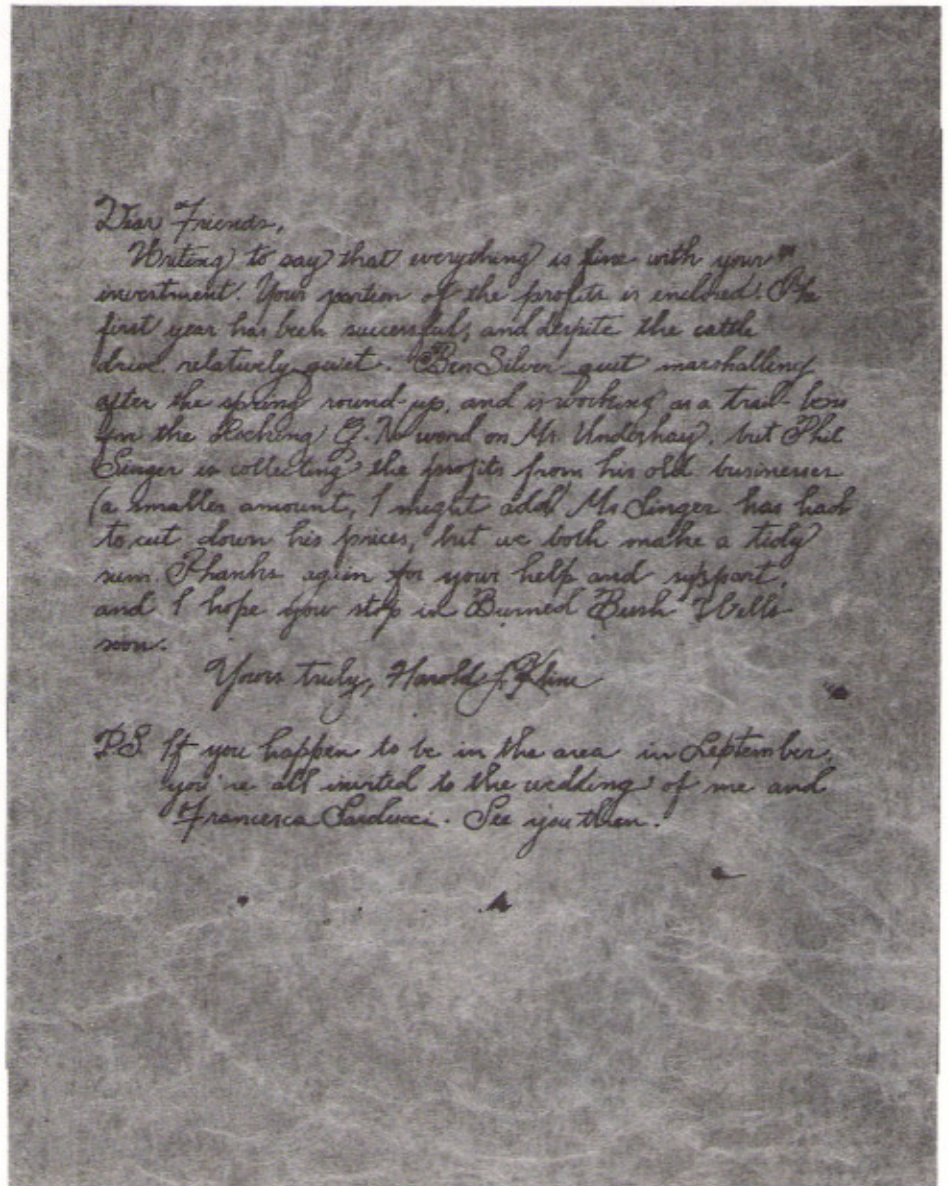 Dear Friends,
Writing to say that everything is fine with your
investment. Your portion of the profits is enclosed. The
first year has been successful, and despite the cattle
drive, relatively quiet. Ben Silver quit marshalling
after the spring round-up, and is working as a trail-boss
for the Rocking G. No word on Mr. Underhay, but Phil
Singer is collecting the profits from his old businesses
(a smaller amount, I might add. Mr Singer has had
to cut down his prices, but we both make a tidy
sum. Thanks again for your help and support,
and I hope you stop in Burned Bush Wells
soon.
Yours truly, Harold J. Kline
P.S. If you happen to be in the area in September,
you're all invited to the wedding of me and
Francesca Sarducci. See you then.